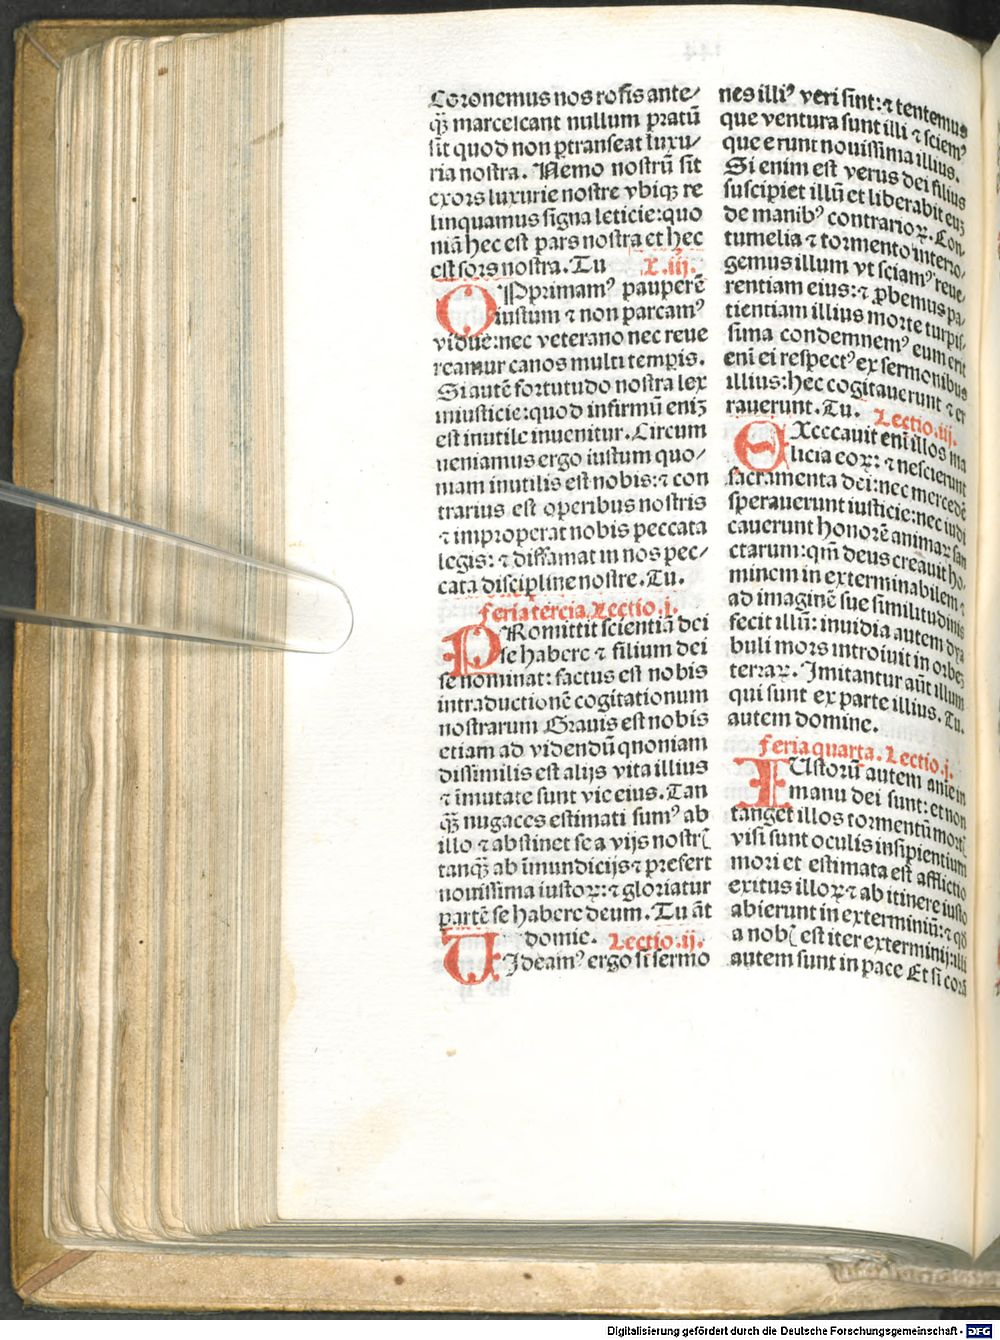 Coronemus nos rosis ante⸗
qꝫ marcescant nullum pratū
sit quod non ꝑtranseat luxu⸗
ria nostra. Nemo nostrū sit
exors luxurie nostre vbiqꝫ re
linquamus signa leticie:quo
niā hec est pars nostra et hec
est sors nostra. Tu L. iij.
OPprimamꝰ pauperē
iustum ⁊ non parcamꝰ
vidue:nec veterano nec reue
reamur canos multi tempis.
Si autē fortutudo nostra lex
iniusticie:quod infirmū eniꝫ
est inutile inuenitur. Circum
ueniamus ergo iustum quo⸗
niam inutilis est nobis:⁊ con
trarius est operibus nostris
⁊ improperat nobis peccata
legis: ⁊ diffamat in nos pec⸗
cata discipline nostre. Tu.
feria tercia. Lectio. j.
PRomittit scientiā dei
se habere ⁊ filium dei
se nominat: factus est nobis
in traductionē cogitationum
nostrarum Grauis est nobis
etiam ad videndū qnoniam
dissimilis est alijs vita illius
⁊ īmutate sunt vie eius. Tan
qꝫ nugaces estimati sumꝰ ab
illo ⁊ abstinet se a vijs nostrꝭ
tanqꝫ ab īmundicijs ⁊ prefert
nouissima iustoꝝ: ⁊ gloriatur
partē se habere deum. Tu āt
domie. Lectio. ij.
UIdeamꝰ ergo si sermo
nes illiꝰ veri sint: ⁊ tentemus
que ventura sunt illi ⁊ sciemꝰ
que erunt nouissima illius.
Si enim est verus dei filius
suscipiet illū et liberabit euꝫ
de manibꝰ contrarioꝝ. Con⸗
tumelia ⁊ tormento interro⸗
gemus illum vt sciamꝰ reue⸗
rentiam eius: ⁊ ꝓbemus pa⸗
tientiam illius morte turpis⸗
sima condemnemꝰ eum erit
enī ei respectꝰ ex sermonibus
illius: hec cogitauerunt ⁊ er
rauerunt. Tu. Lectio. iij.
EXcecauit enī illos ma
licia eoꝝ: ⁊ nescierunt
sacramenta dei: nec mercedē
sperauerunt iusticie: nec iudi
cauerunt honorē animaꝝ san
ctarum: qm̄ deus creauit ho⸗
minem in exterminabilem ⁊
ad imaginē sue similitudinis
fecit illū: inuidia autem dya
buli mors introiuit in orbeꝫ
terraꝝ. Imitantur aūt illum
qui sunt ex parte illius. Tu.
autem domine.
feria quarta. Lectio. j.
IUstorū autem anie in
manu dei sunt: et non
tanget illos tormentū mortꝭ
visi sunt oculis insipientium
mori et estimata est afflictio
exitus illoꝝ ⁊ ab itinere iusto
abierunt in exterminiū: ⁊ qd̄
a nobꝭ est iter exterminij: illi
autem sunt in pace Et si corā
Digitalisierung gefördert durch die Deutsche Forschungsgemeinschaft - DFG